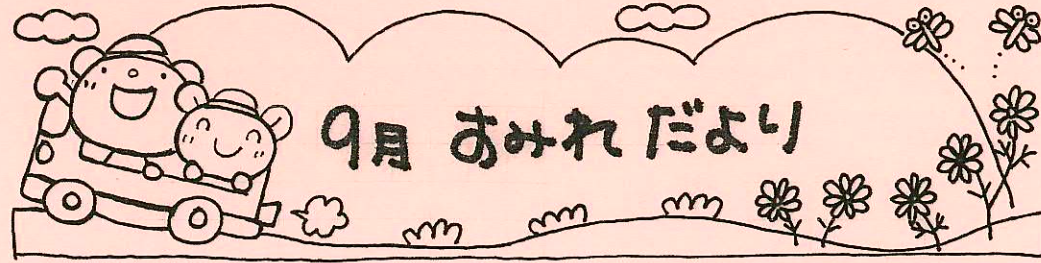 9月 すみれ だより